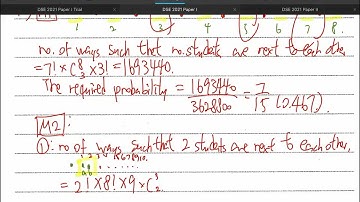 DSE 2021 Paper I Trial DSE 2021 Paper I DSE 2021 Paper II
1 2 3 4 5 6 7 8
no. of ways such that no students are next to each other
= 7! × C⁸₃ × 3! = 1693440.
The required probability = 1693440/3628800 = 7/15 (0.467)
M2:
①: no of ways such that 2 students are next to each other
= 2! × 8! × 9 × C³₂